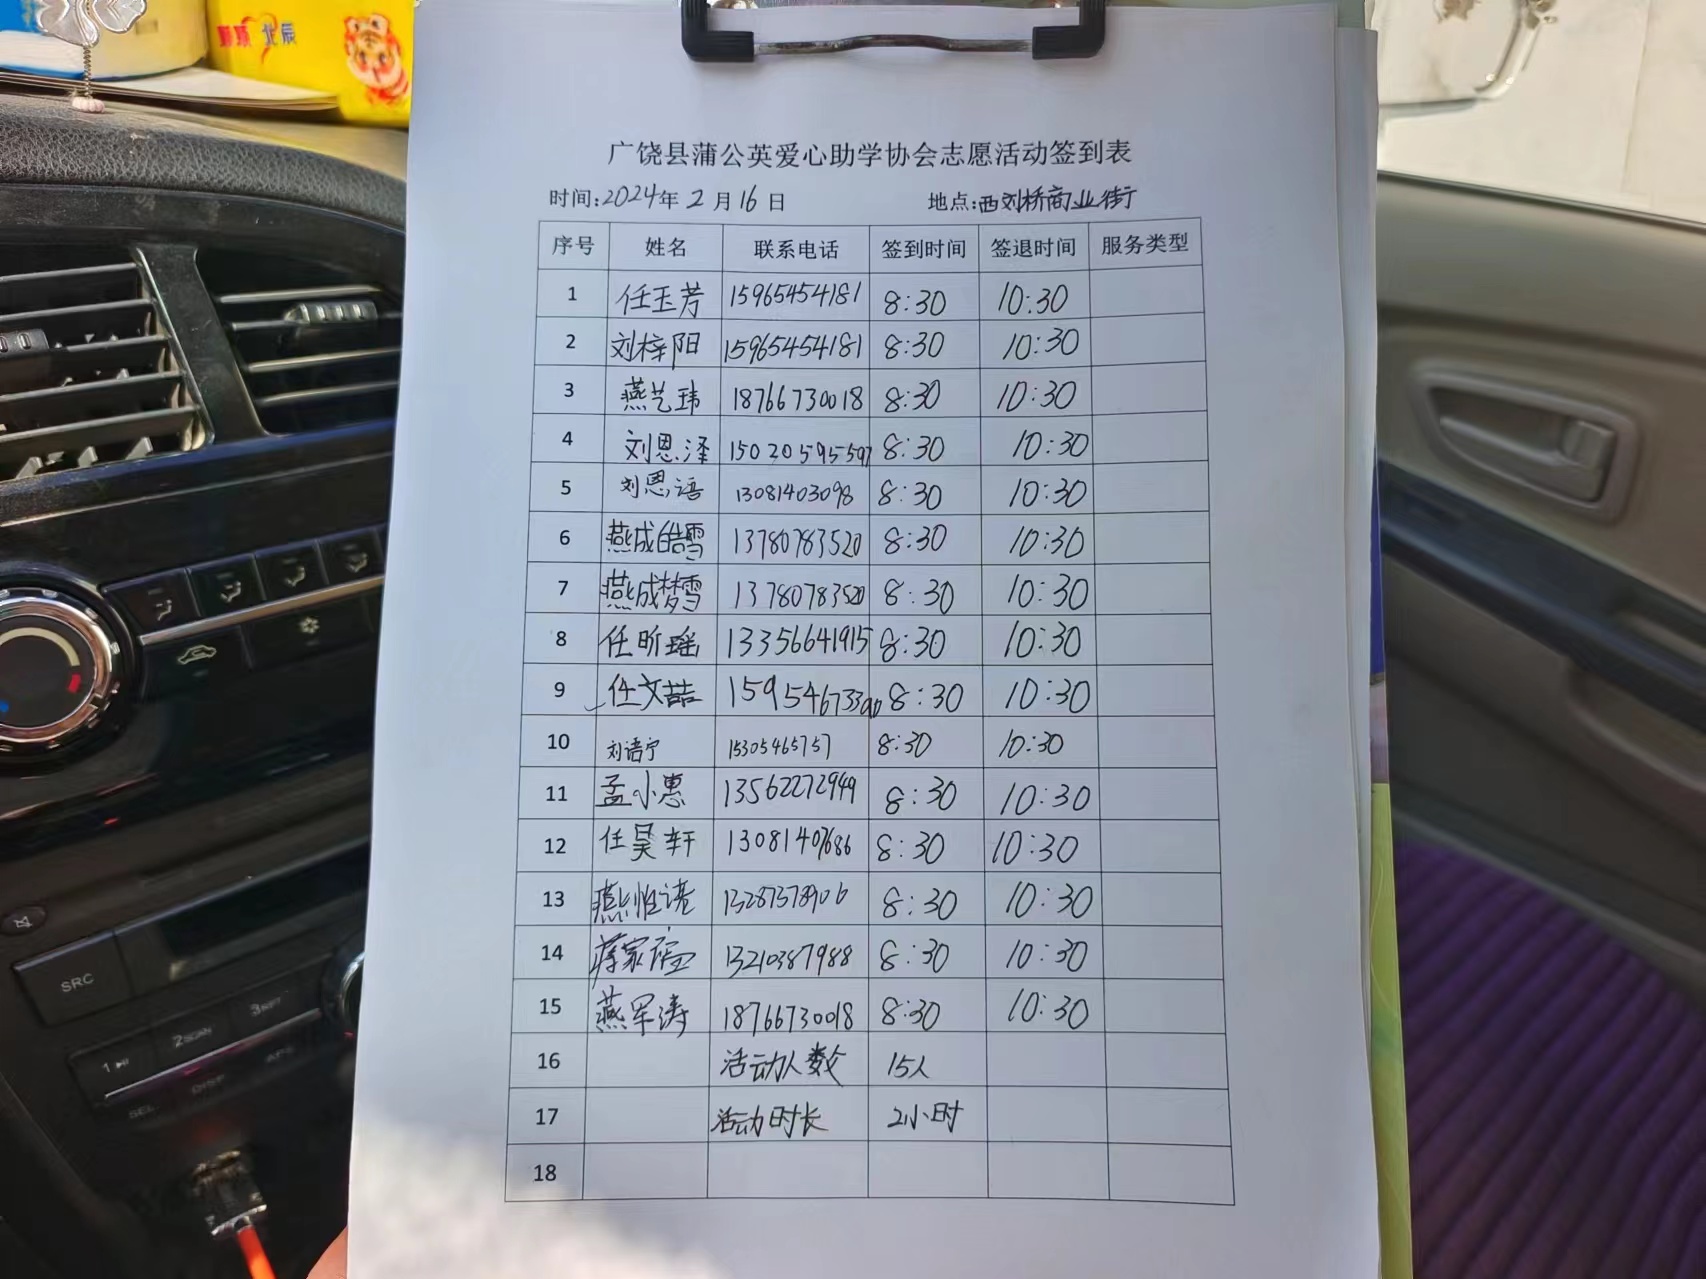 北辰
广饶县蒲公英爱心助学协会志愿活动签到表
时间:2024年 2 月 16 日 地点:西刘桥商业街
序号 姓名 联系电话 签到时间 签退时间 服务类型
1 任玉芳 15965454181 8:30 10:30
2 刘梓阳 15965454181 8:30 10:30
3 燕艺玮 18766730018 8:30 10:30
4 刘恩泽 15020595597 8:30 10:30
5 刘恩语 13081403098 8:30 10:30
6 燕成皓雪 13780783520 8:30 10:30
7 燕成梦雪 13780783520 8:30 10:30
8 任昕瑶 13356641915 8:30 10:30
9 任文喆 15954673390 8:30 10:30
10 刘语宁 15305465757 8:30 10:30
11 孟小惠 13562272949 8:30 10:30
12 任昊轩 13081407686 8:30 10:30
13 燕惟诺 13287378906 8:30 10:30
14 蒋家 13210387988 8:30 10:30
15 燕军涛 18766730018 8:30 10:30
16 活动人数 15人
17 活动时长 2小时
18
SRC
1 2SCAN 3RPT
SEL DISP APS